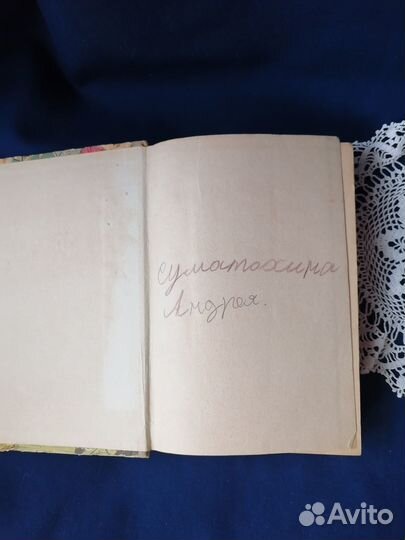 Суматохина
Андрея.
Avito